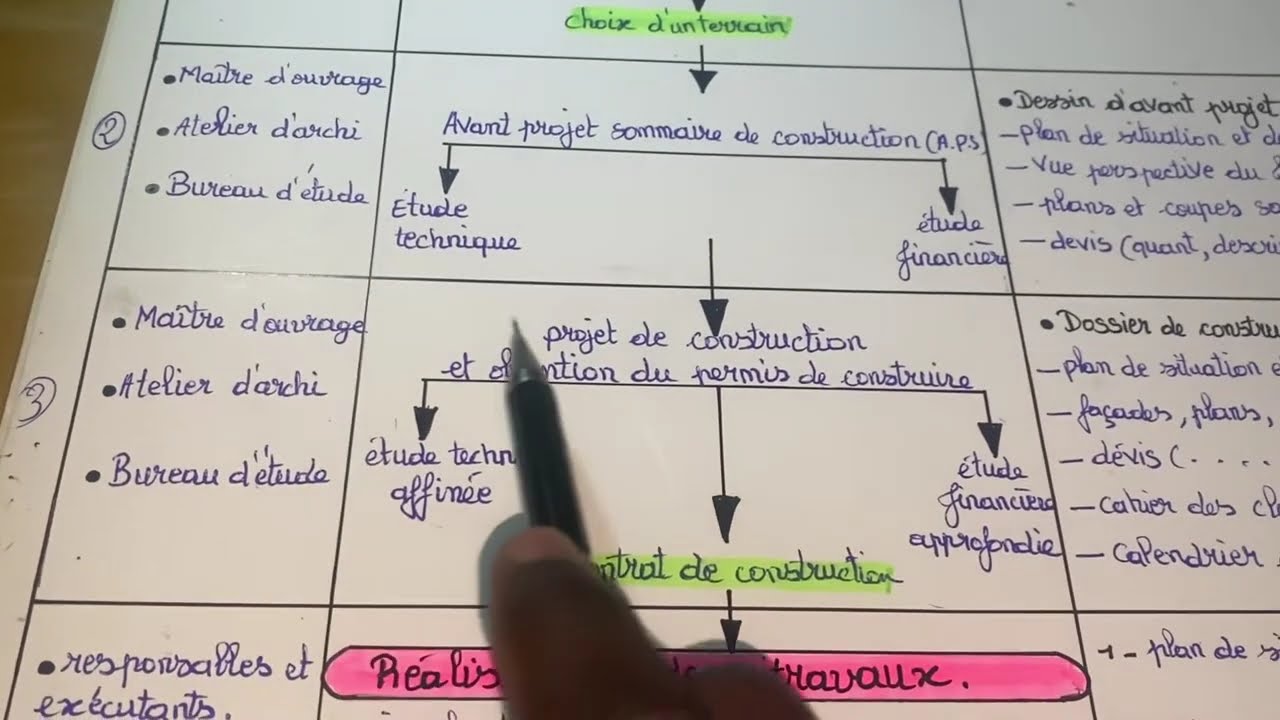 choix d'un terrain
②
• Maître d'ouvrage
• Atelier d'archi
• Bureau d'étude
Avant projet sommaire de construction (A.P.S
Étude
technique
étude
financière
• Dessin d'avant projet
– plan de situation et
– Vue perspective du
– plans et coupes
– devis (quant, descri
③
• Maître d'ouvrage
• Atelier d'archi
• Bureau d'étude
projet de construction
et du permis de construire
étude techn
affinée
étude
financière
approfondie
ntrat de construction
• Dossier de constru
– plan de situation
– façades, plans,
– dévis (. . . .
– Cahier des
– Calendrier
• responsables et
exécutants.
Réalis travaux.
1 - plan de